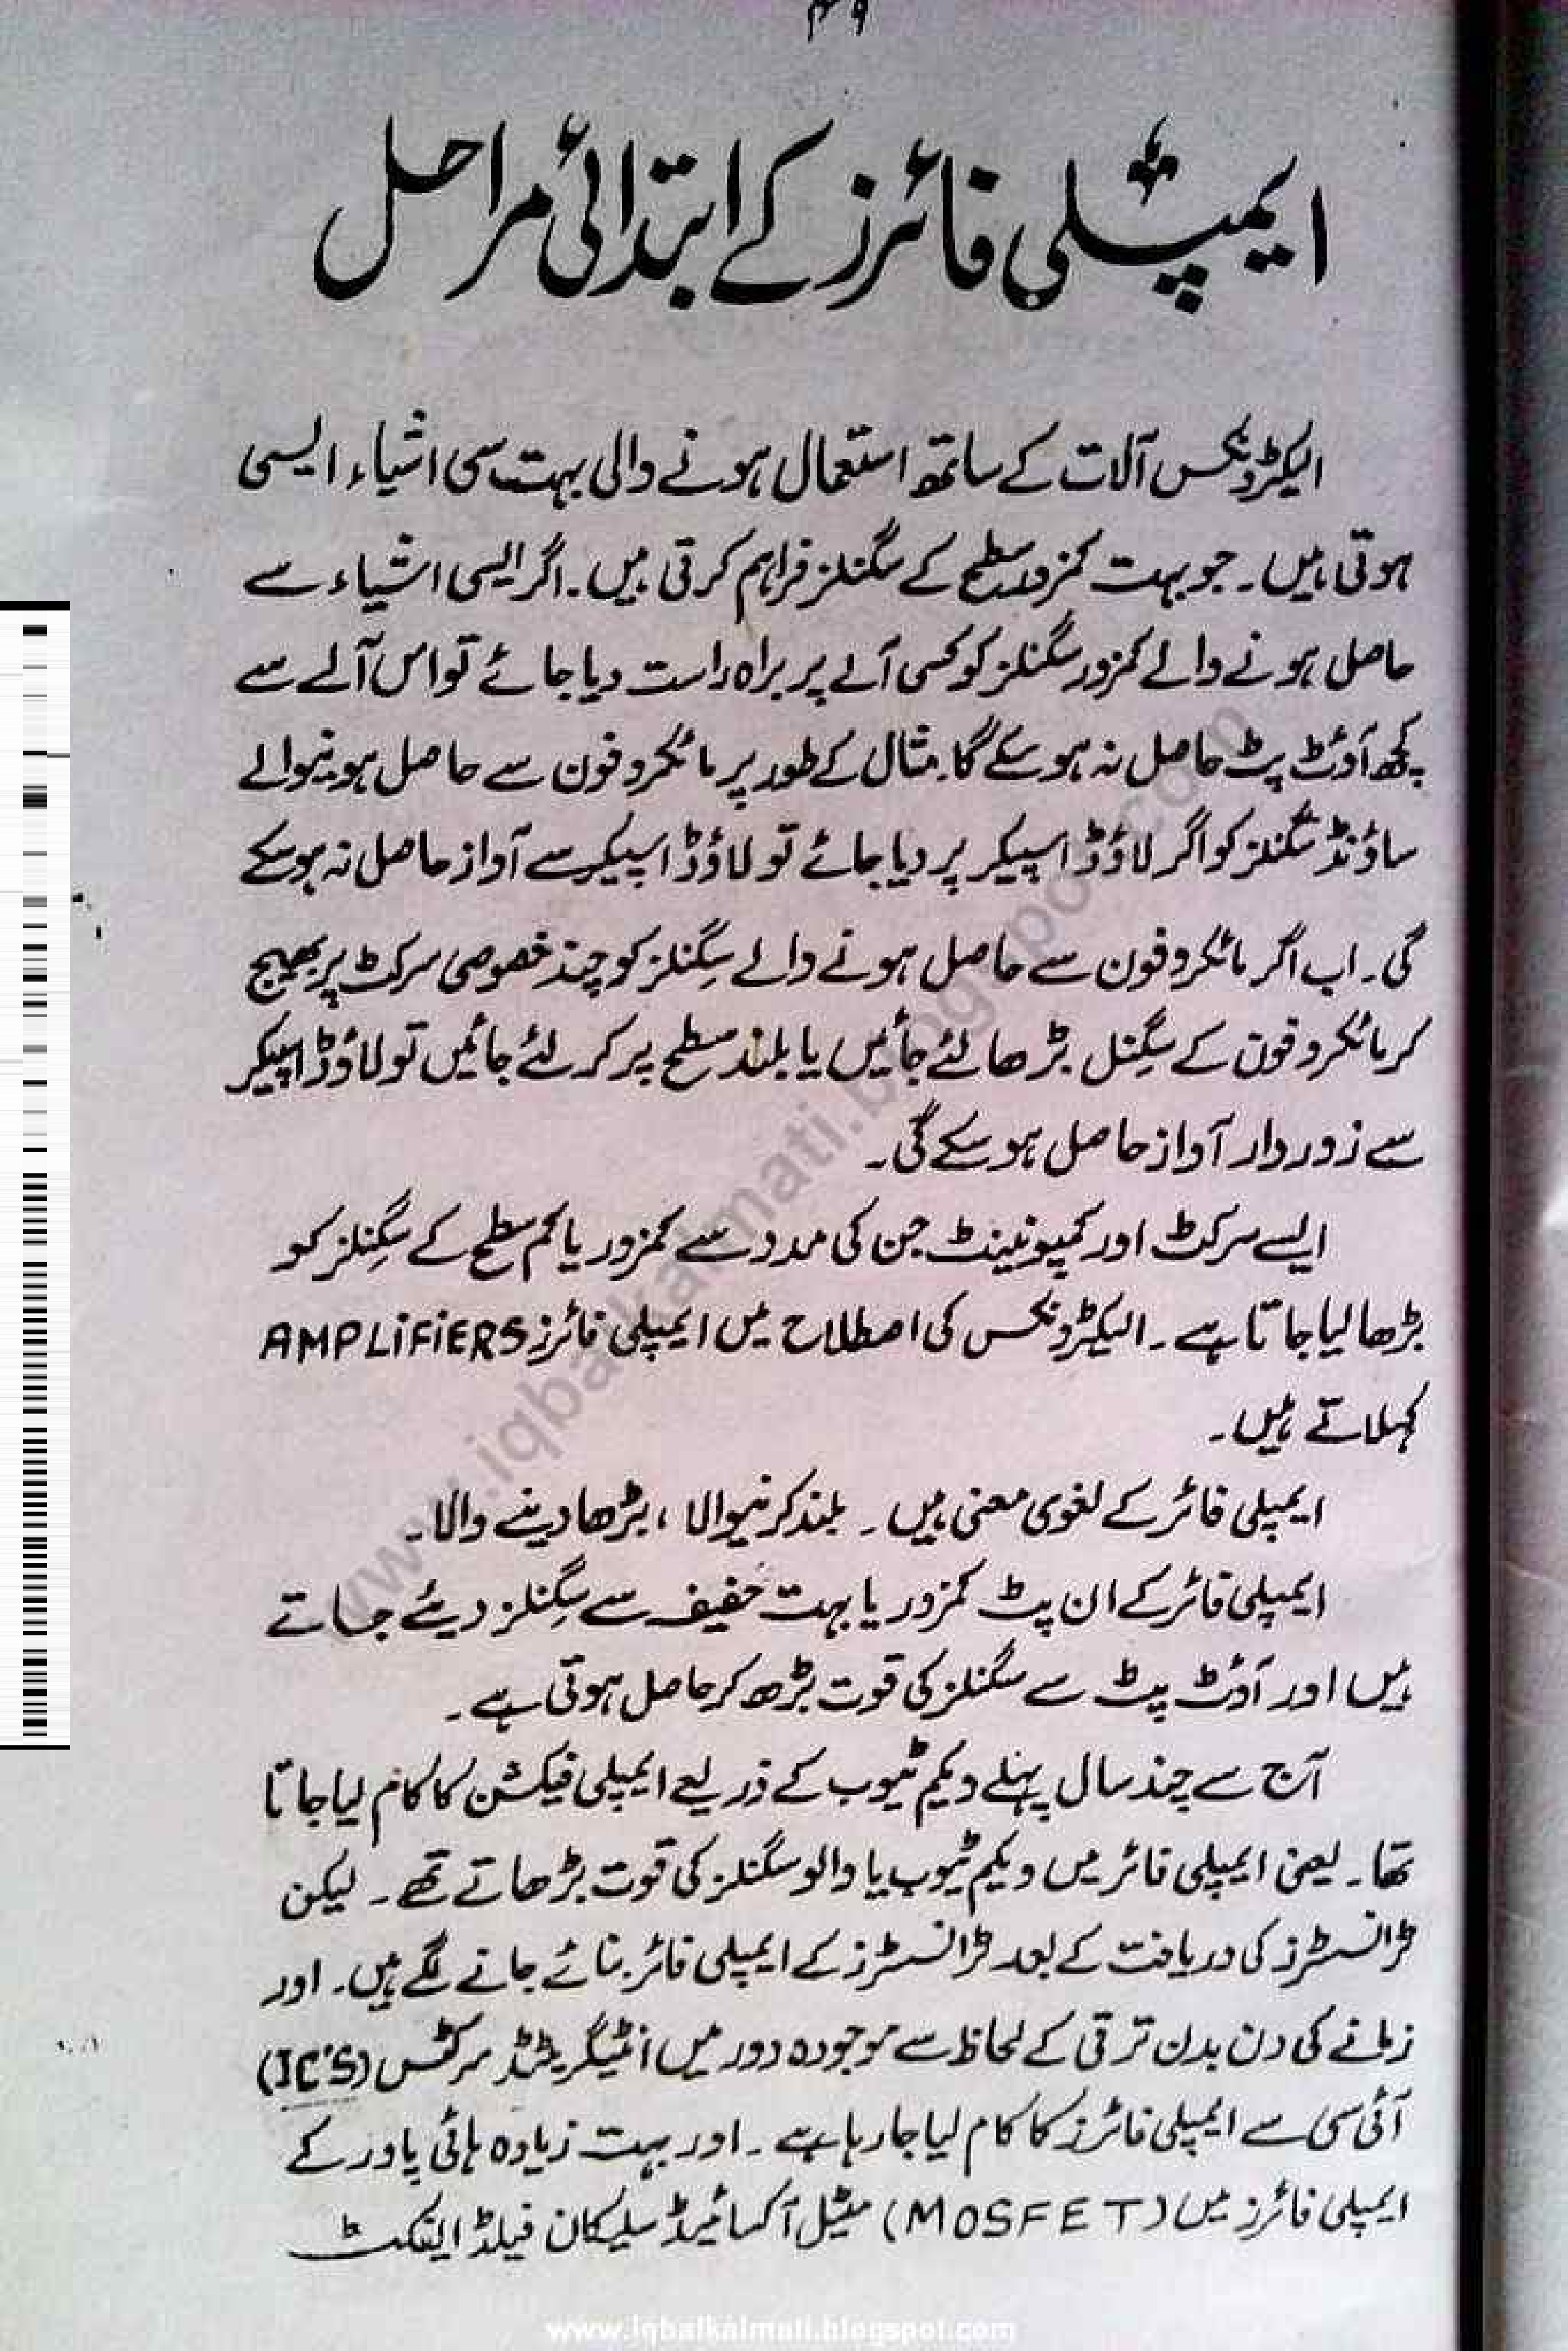 ۴۹
ایمپلی فائرز کے ابتدائی مراحل
الیکٹرونکس آلات کے ساتھ استعمال ہونے والی بہت سی اشیاء ایسی
ہوتی ہیں۔ جو بہت کمزور سطح کے سگنلز فراہم کرتی ہیں۔ اگر ایسی اشیاء سے
حاصل ہونے والے کمزور سگنلز کو کسی آلے پر براہ راست دیا جائے تو اس آلے سے
کچھ آؤٹ پٹ حاصل نہ ہو سکے گا۔ مثال کے طور پر مائکروفون سے حاصل ہونیوالے
ساؤنڈ سگنلز کو اگر لاؤڈ اسپیکر پر دیا جائے تو لاؤڈ اسپیکر سے آواز حاصل نہ ہو سکے
گی۔ اب اگر مائکروفون سے حاصل ہونے والے سگنلز کو چند خصوصی سرکٹ پر بھیج
کر مائکروفون کے سگنل بڑھا لئے جائیں یا بلند سطح پر کر لئے جائیں تو لاؤڈ اسپیکر
سے زور دار آواز حاصل ہو سکے گی۔
ایسے سرکٹ اور کمپونینٹ جن کی مدد سے کمزور یا کم سطح کے سگنلز کو
بڑھا لیا جاتا ہے۔ الیکٹرونکس کی اصطلاح میں ایمپلی فائرز AMPLiFiERS
کہلاتے ہیں۔
ایمپلی فائر کے لغوی معنی ہیں۔ بلند کرنیوالا ، بڑھا دینے والا۔
ایمپلی فائر کے ان پٹ کمزور یا بہت خفیف سے سگنلز دیئے جاتے
ہیں اور آؤٹ پٹ سے سگنلز کی قوت بڑھ کر حاصل ہوتی ہے۔
آج سے چند سال پہلے ویکم ٹیوب کے ذریعے ایمپلی فیکشن کا کام لیا جاتا
تھا۔ یعنی ایمپلی فائر میں ویکم ٹیوب یا والو سگنلز کی قوت بڑھاتے تھے۔ لیکن
ٹرانسسٹرز کی دریافت کے بعد ٹرانسسٹرز کے ایمپلی فائر بنائے جانے لگے ہیں۔ اور
زمانے کی دن بدن ترقی کے لحاظ سے موجودہ دور میں انٹیگریٹڈ سرکٹس (IC'S)
آئی سی سے ایمپلی فائرز کا کام لیا جا رہا ہے۔ اور بہت زیادہ ہائی پاور کے
ایمپلی فائرز میں (MOSFET) میٹل آکسائیڈ سلیکان فیلڈ ایفکٹ
www.iqbalkalmati.blogspot.com
www.iqbalkalmati.blogspot.com